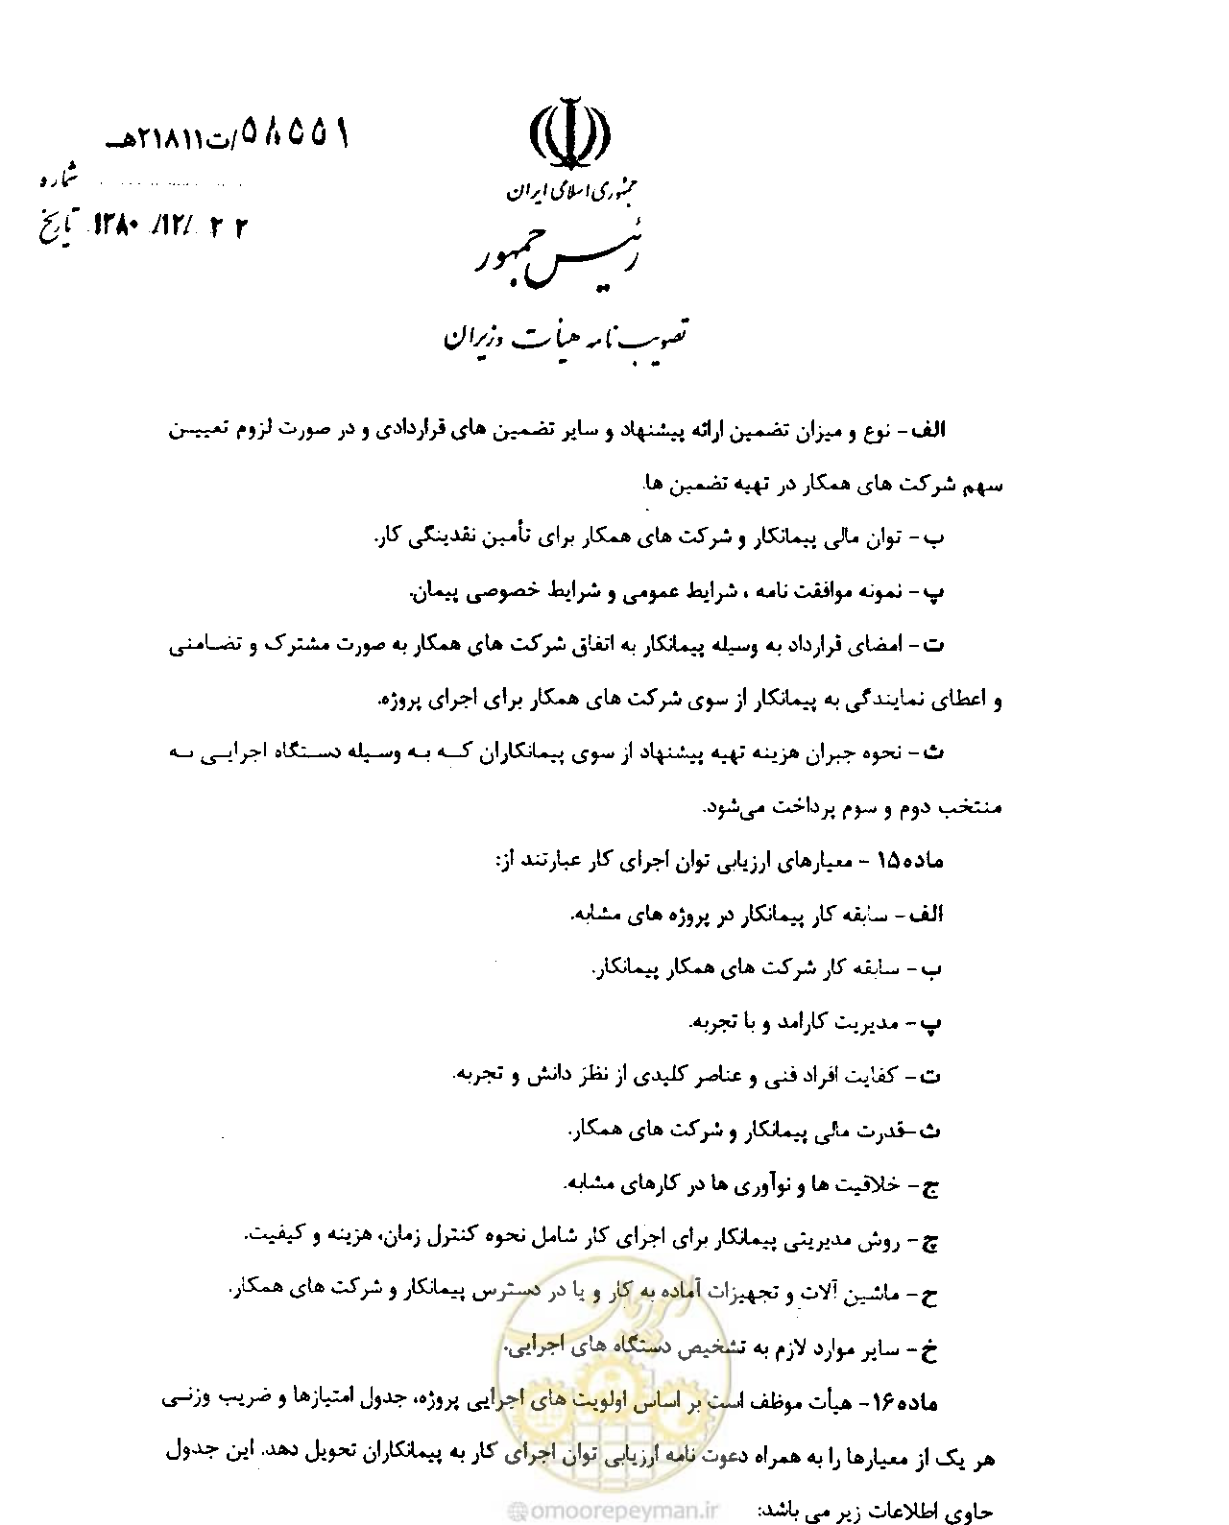 ۵۸۵۵۱/ت۲۱۸۱۱هـ
شماره
تاریخ ۱۳۸۰/۱۲/۲۲
جمهوری اسلامی ایران
رئیس جمهور
تصویب نامه هیأت وزیران
الف- نوع و میزان تضمین ارائه پیشنهاد و سایر تضمین های قراردادی و در صورت لزوم تعییـن
سهم شرکت های همکار در تهیه تضمین ها.
ب- توان مالی پیمانکار و شرکت های همکار برای تأمین نقدینگی کار.
پ- نمونه موافقت نامه ، شرایط عمومی و شرایط خصوصی پیمان.
ت- امضای قرارداد به وسیله پیمانکار به اتفاق شرکت های همکار به صورت مشترک و تضـامنی
و اعطای نمایندگی به پیمانکار از سوی شرکت های همکار برای اجرای پروژه.
ث- نحوه جبران هزینه تهیه پیشنهاد از سوی پیمانکاران کـه بـه وسـیله دسـتگاه اجرایـی بـه
منتخب دوم و سوم پرداخت می‌شود.
ماده۱۵ - معیارهای ارزیابی توان اجرای کار عبارتند از:
الف- سابقه کار پیمانکار در پروژه های مشابه.
ب- سابقه کار شرکت های همکار پیمانکار.
پ- مدیریت کارامد و با تجربه.
ت- کفایت افراد فنی و عناصر کلیدی از نظر دانش و تجربه.
ث-قدرت مالی پیمانکار و شرکت های همکار.
ج- خلاقیت ها و نوآوری ها در کارهای مشابه.
چ- روش مدیریتی پیمانکار برای اجرای کار شامل نحوه کنترل زمان، هزینه و کیفیت.
ح- ماشین آلات و تجهیزات آماده به کار و یا در دسترس پیمانکار و شرکت های همکار.
خ- سایر موارد لازم به تشخیص دستگاه های اجرایی.
ماده۱۶- هیأت موظف است بر اساس اولویت های اجرایی پروژه، جدول امتیازها و ضریب وزنـی
هر یک از معیارها را به همراه دعوت نامه ارزیابی توان اجرای کار به پیمانکاران تحویل دهد. این جدول
حاوی اطلاعات زیر می باشد:
امورپیمان
omoorepeyman.ir